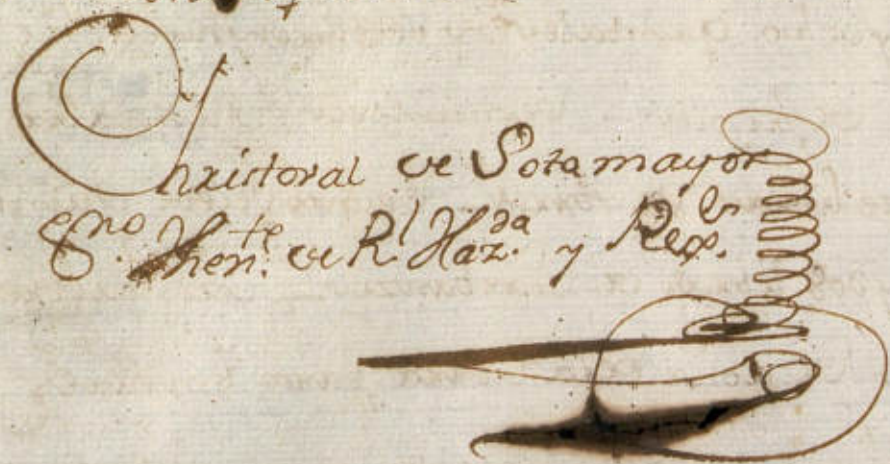 Christoval de Sotamayor
Esno. Then.te de Rl Haz.da y Rex.s